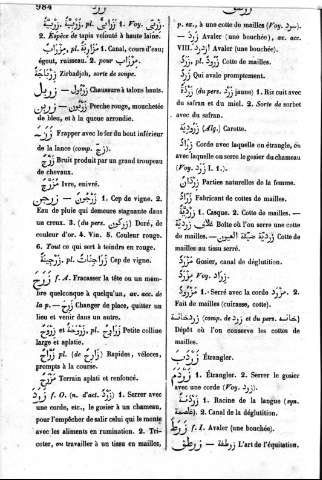 984
زرب
زرق
زربى, pl. زرابى, زربية 1. Voy.
2. Espèce de tapis velouté à haute laine.
مزراب pl. مزاريب 1. Canal, cours d'eau;
égout, ruisseau. 2. pour
زرباجة Zirbadjeh, sorte de soupe.
زربول — زربول Chaussure à talons hauts.
زربون — زربين Perche rouge, mouchetée
de bleu, et à la queue arrondie.
زج Frapper avec le fer du bout inférieur
de la lance (comp. زج).
زرج Bruit produit par un grand troupeau
de chevaux.
مزرج Ivre, enivré.
زرجن — زرجون 1. Cep de vigne. 2.
Eau de pluie qui demeure stagnante dans
un creux. 3. (du pers. زركون) Doré, de
couleur d'or. 4. Vin. 5. Couleur rouge.
6. Tout ce qui sert à teindre en rouge.
زرجينة pl. زراجنات Cep de vigne.
زرح f. A. Fracasser la tête ou un mem-
bre quelconque à quelqu'un, av. acc. de
la p. — زرح Changer de place, quitter un
lieu et venir dans un autre.
زروح et زروحة, pl. زراوح Petite colline
large et aplatie.
زراح pl. (de زارح) Rapides, véloces,
prompts à la course.
مزرح Terrain aplati et renfoncé.
زرد f. O. (n. d'act. زرد) 1. Serrer avec
une corde, etc., le gosier à un chameau,
pour l'empêcher de salir celui qui le monte
avec les aliments en rumination. 2. Tri-
coter, ou travailler à un tissu en mailles,
p. ex., à une cotte de mailles (Voy. سرد).
— زرد Avaler (une bouchée), av. acc.
VIII. ازدرد Avaler (une bouchée).
زرد, pl. زرود Cotte de mailles.
زرد Qui avale promptement.
زردة (du pers. زرد jaune) 1. Riz cuit avec
du safran et du miel. 2. Sorte de sorbet
avec du safran.
زردية (Alg.) Carotte.
زراد Corde avec laquelle on étrangle, ou
avec laquelle on serre le gosier du chameau
(Voy. زرد I. 1.).
زردان Parties naturelles de la femme.
زراد Fabricant de cottes de mailles.
زردية 1. Casque. 2. Cotte de mailles. —
غلاف زردية Boîte où l'on serre une cotte
de mailles. — زردية ضيقة العيون Cotte de
mailles au tissu serré.
مزرد Gosier, canal de déglutition.
مزراد Voy. زراد.
مزرود 1. Serré avec la corde مزرد. 2.
Fait de mailles (cuirasse, cotte).
زردخانة (comp. de زرد et du pers. خانه)
Dépôt où l'on conserve les cottes de
mailles.
زردب Étrangler.
زردم 1. Étrangler. 2. Serrer le gosier
avec une corde (Voy. زرد).
زردمة 1. Racine de la langue (syn.
غلصمة). 2. Canal de la déglutition.
زرط f. I. Avaler (une bouchée).
زرطق — زرطقة L'art de l'équitation.